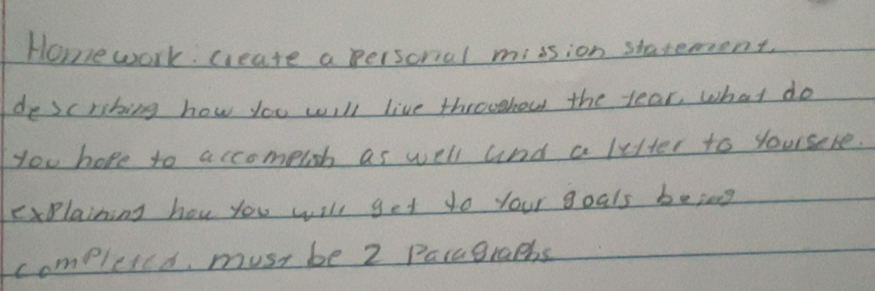 Homework: create a personal mission statement.
describing how you will live throughout the year. what do
you hope to accomplish as well and a letter to yourself.
explaining how you will get to your goals being
completed. must be 2 Paragraphs